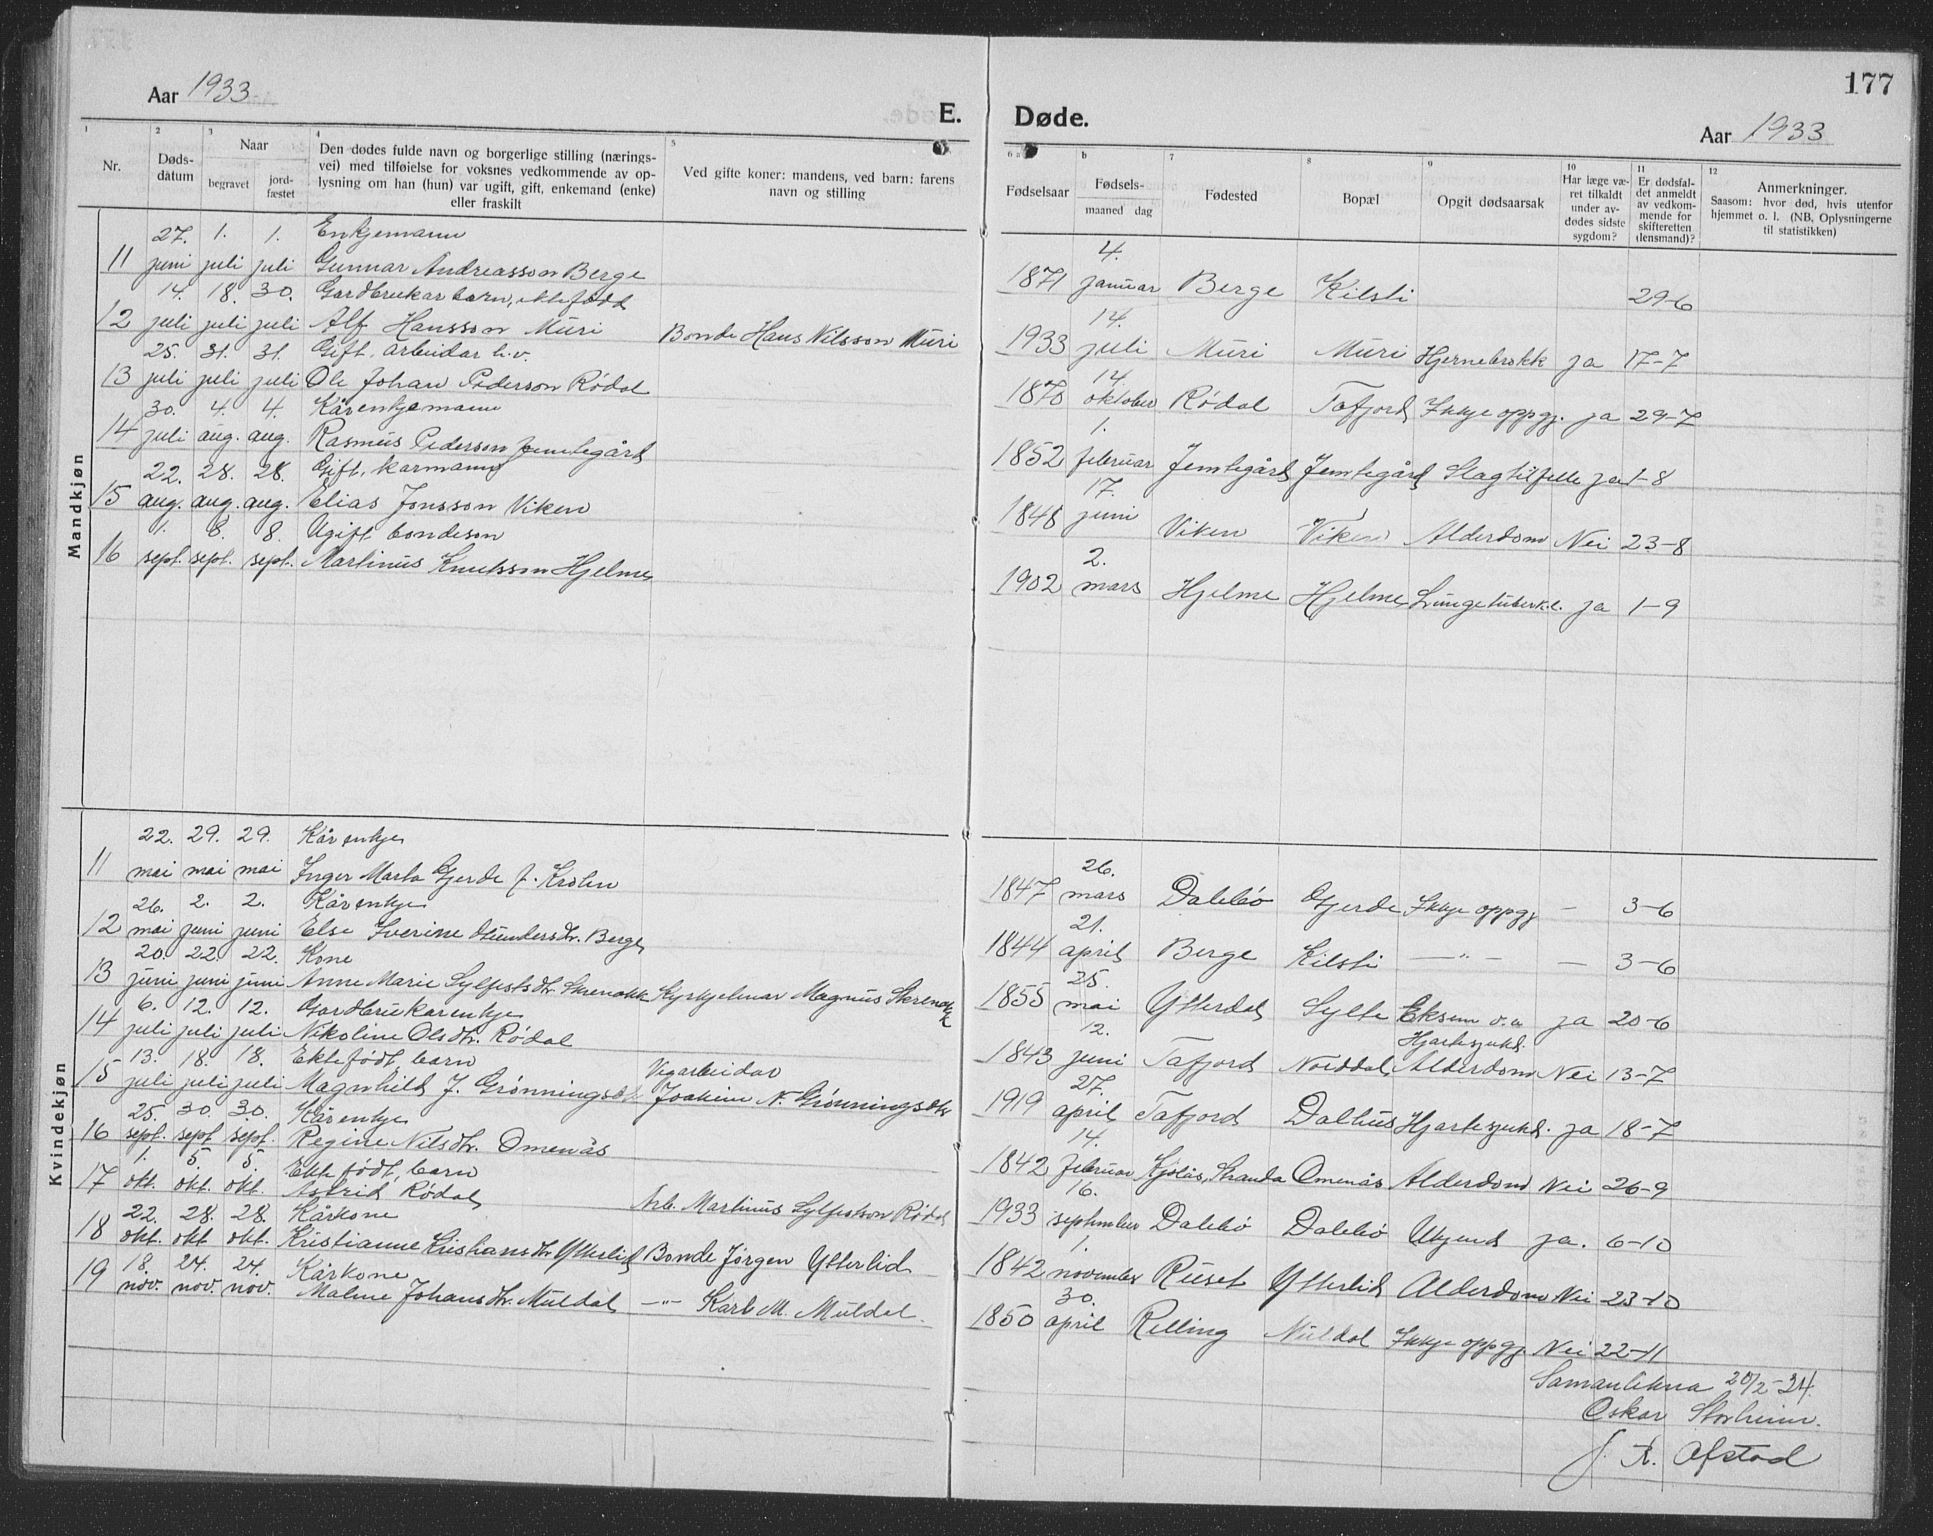 Aar 1933
E.
1 2 3 4 5
Nr.
Døds-
datum
Naar
begravet
jord-
fæstet
Den dødes fulde navn og borgerlige stilling (nærings-
vei) med tilføielse for voksnes vedkommende av op-
lysning om han (hun) var ugift, gift, enkemand (enke)
eller fraskilt
Ved gifte koner: mandens, ved barn: farens
navn og stilling
Mandkjøn
27. 1. 1. Enkjemann
11 juni juli juli Gunnar Andreasson Berge
14. 18. 30. Gardbrukar barn, ektefødd
12 juli juli juli Alf Hansson Muri Bonde Hans Nilsson Muri
25. 31. 31. Gift, arbeidar h.v.
13 juli juli juli Ole Johan Pederson Rødal
30. 4. 4. Kårenkjemann
14 juli aug. aug. Rasmus Pederson Jemtegård
22. 28. 28. Gift, karmann
15 aug. aug. aug. Elias Jonsson Viken
1. 8. 8. Ugift bondeson
16 sept. sept. sept. Martinus Knutsson Hjelme
Kvindekjøn
22. 29. 29. Kårenkje
11 mai mai mai Inger Marta Gjerde f.
26. 2. 2. Kårenkje
12 mai juni juni Else Iverine Berge
20. 22. 22. Kone
13 juni juni juni Anne Marie Sylfestsdtr. Skrenakk Kyrkjelenar Magnus Skrenakk
6. 12. 12. Gardbrukarenkje
14 juli juli juli Nikoline Olsdtr. Rødal
13. 18. 18. Ektefødt barn Vegarbeidar
15 juli juli juli Magnhild J. Grønningsæter Joakim N. Grønningsæter
25. 30. 30. Kårenkje
16 sept. sept. sept. Regine Nilsdtr. Omenås
1. 5. 5. Ektefødt barn
17 okt. okt. okt. Astrid Rødal Arb. Martinus Sylfestson Rødal
22. 28. 28. Kårkone
18 okt. okt. okt. Kristianne Kristiansdtr. Ytterlid Bonde Jørgen Ytterlid
18. 24. 24. Kårkone
19 nov. nov. nov. Malene Johansdtr. Muldal —"— Karl M. Muldal.
177
Døde.
Aar 1933
6 a b 7 8 9 10 11 12
Fødselsaar
Fødsels-
maaned dag
Fødested
Bopæl
Opgit dødsaarsak
Har læge væ-
ret tilkaldt
under av-
dødes sidste
sygdom?
Er dødsfal-
det anmeldt
av vedkom-
mende for
skifteretten
(lensmand)?
Anmerkninger.
Saasom: hvor død, hvis utenfor
hjemmet o. l. (NB. Oplysningerne
til statistikken)
4.
1871 januar Berge Kilsti 29-6
14.
1933 juli Muri Muri Hjernebrokk ja 17-7
14.
1870 oktober Rødal Tafjord Ikkje oppgj. ja 29-7
1.
1852 februar Jemtegård Jemtegård Slagtilfelle ja 1-8
17.
1848 juni Viken Viken Alderdom Nei 23-8
2.
1902 mars Hjelme Hjelme Lungetuberkl. ja 1-9
26.
1847 mars Dalebø Gjerde Ikkje oppgj — 3-6
21.
1844 april Berge Kilsti —"— — 3-6
25.
1855 mai Ytterdal Sylte Eksem o.a ja 20-6
Hjartesjukd.
12.
1843 juni Tafjord Norddal, Alderdom Nei 13-7
27.
1919 april Tafjord Dalhus Hjartesjukd. ja 18-7
14.
1842 februar Kjølås, Stranda Omenås Alderdom Nei 26-9
16.
1933 september Dalebø Dalebø Ukjend ja. 6-10
1.
1842 november Ruset Ytterlid Alderdom Nei 23-10
30.
1850 april Relling Muldal Ikkje oppgj. Nei 22-11
Samanlikna 20/2-34.
Oskar Storheim.
J. R. Ofstad